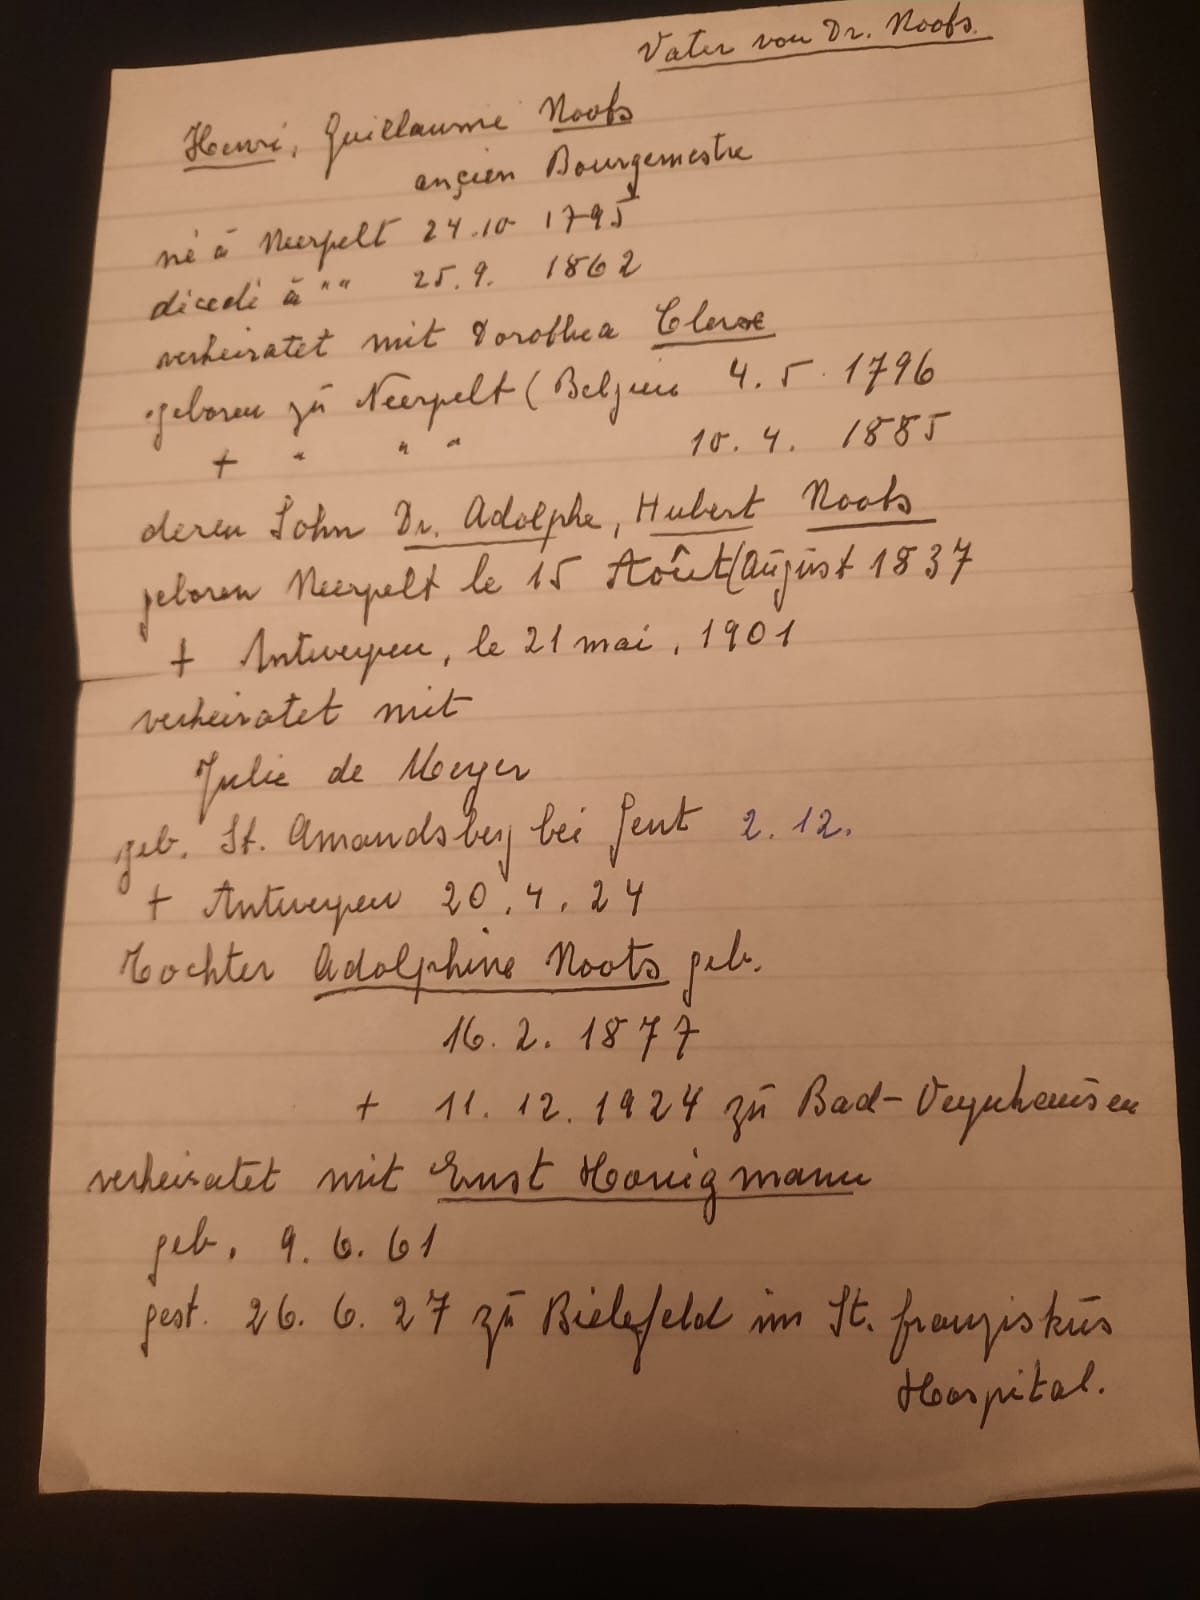 Vater von Dr. Noots.
Henri, Guillaume Noots
ançien Bourgemestre
né à Neerpelt 24.10 1795
décedé à "" 25.9. 1862
verheiratet mit Dorothea Clerx
geboren zu Neerpelt (Belgien 4. 5. 1796
+ " " " 10. 4. 1885
deren Sohn Dr. Adolphe, Hubert Noots
geboren Neerpelt le 15 Aôut (August 1837
+ Antwerpen, le 21 mai, 1901
verheiratet mit
Julie de Meyer
geb. St. Amandsberg bei Gent 2. 12.
+ Antwerpen 20. 4. 24
Tochter Adolphine Noots geb.
16. 2. 1877
+ 11. 12. 1924 zu Bad-Oeynhausen
verheiratet mit Ernst Honigmann
geb. 9. 6. 61
gest. 26. 6. 27 zu Bielefeld im St. Franziskus
Hospital.